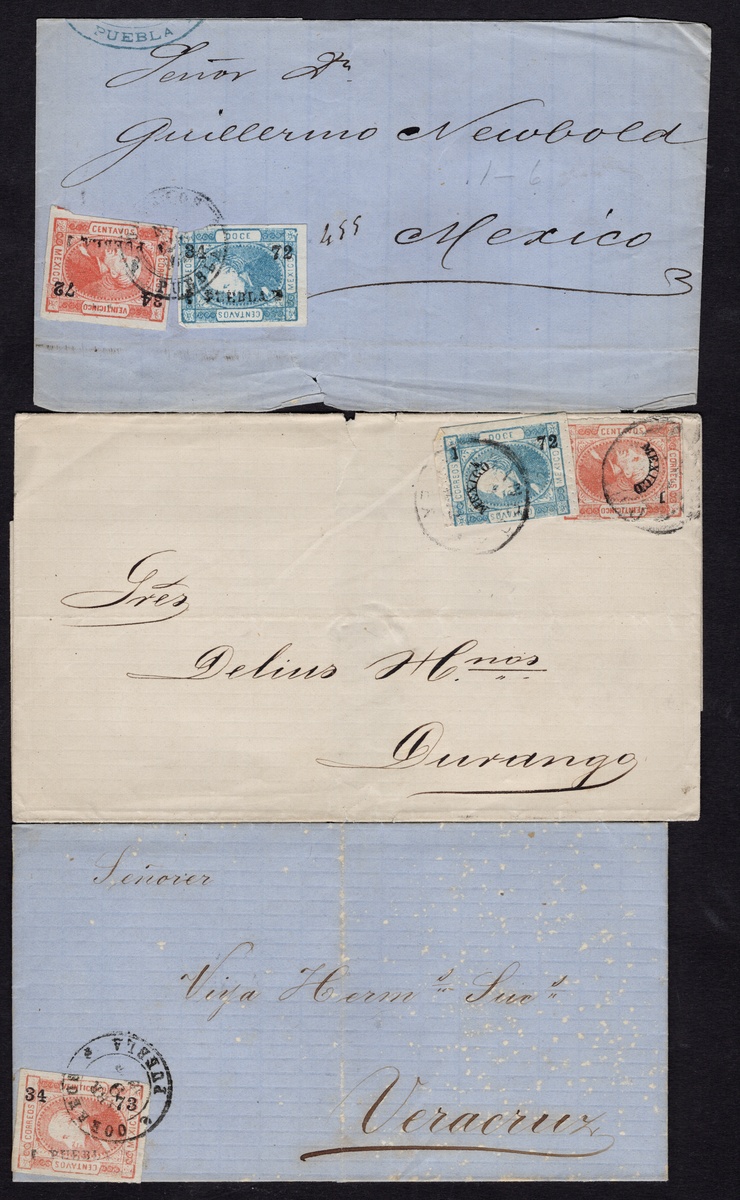 PUEBLA
Señor Dn
Guillermo Newbold
1-6
Mexico
455
CENTAVOS
MEXICO
PUEBLA
72
34
VEINTICINCO
DOCE
34 72
MEXICO
PUEBLA
CENTAVOS
PUEBLA
DOCE
1 72
CORREOS
MEXICO
CENTAVOS
CENTAVOS
CORREOS
MEXICO
1
VEINTICINCO
Sres
Delius Hnos
Durango
Señores
Herms Sucs
Veracruz
PUEBLA
CORREOS
34 73
CORREOS
MEXICO
CENTAVOS